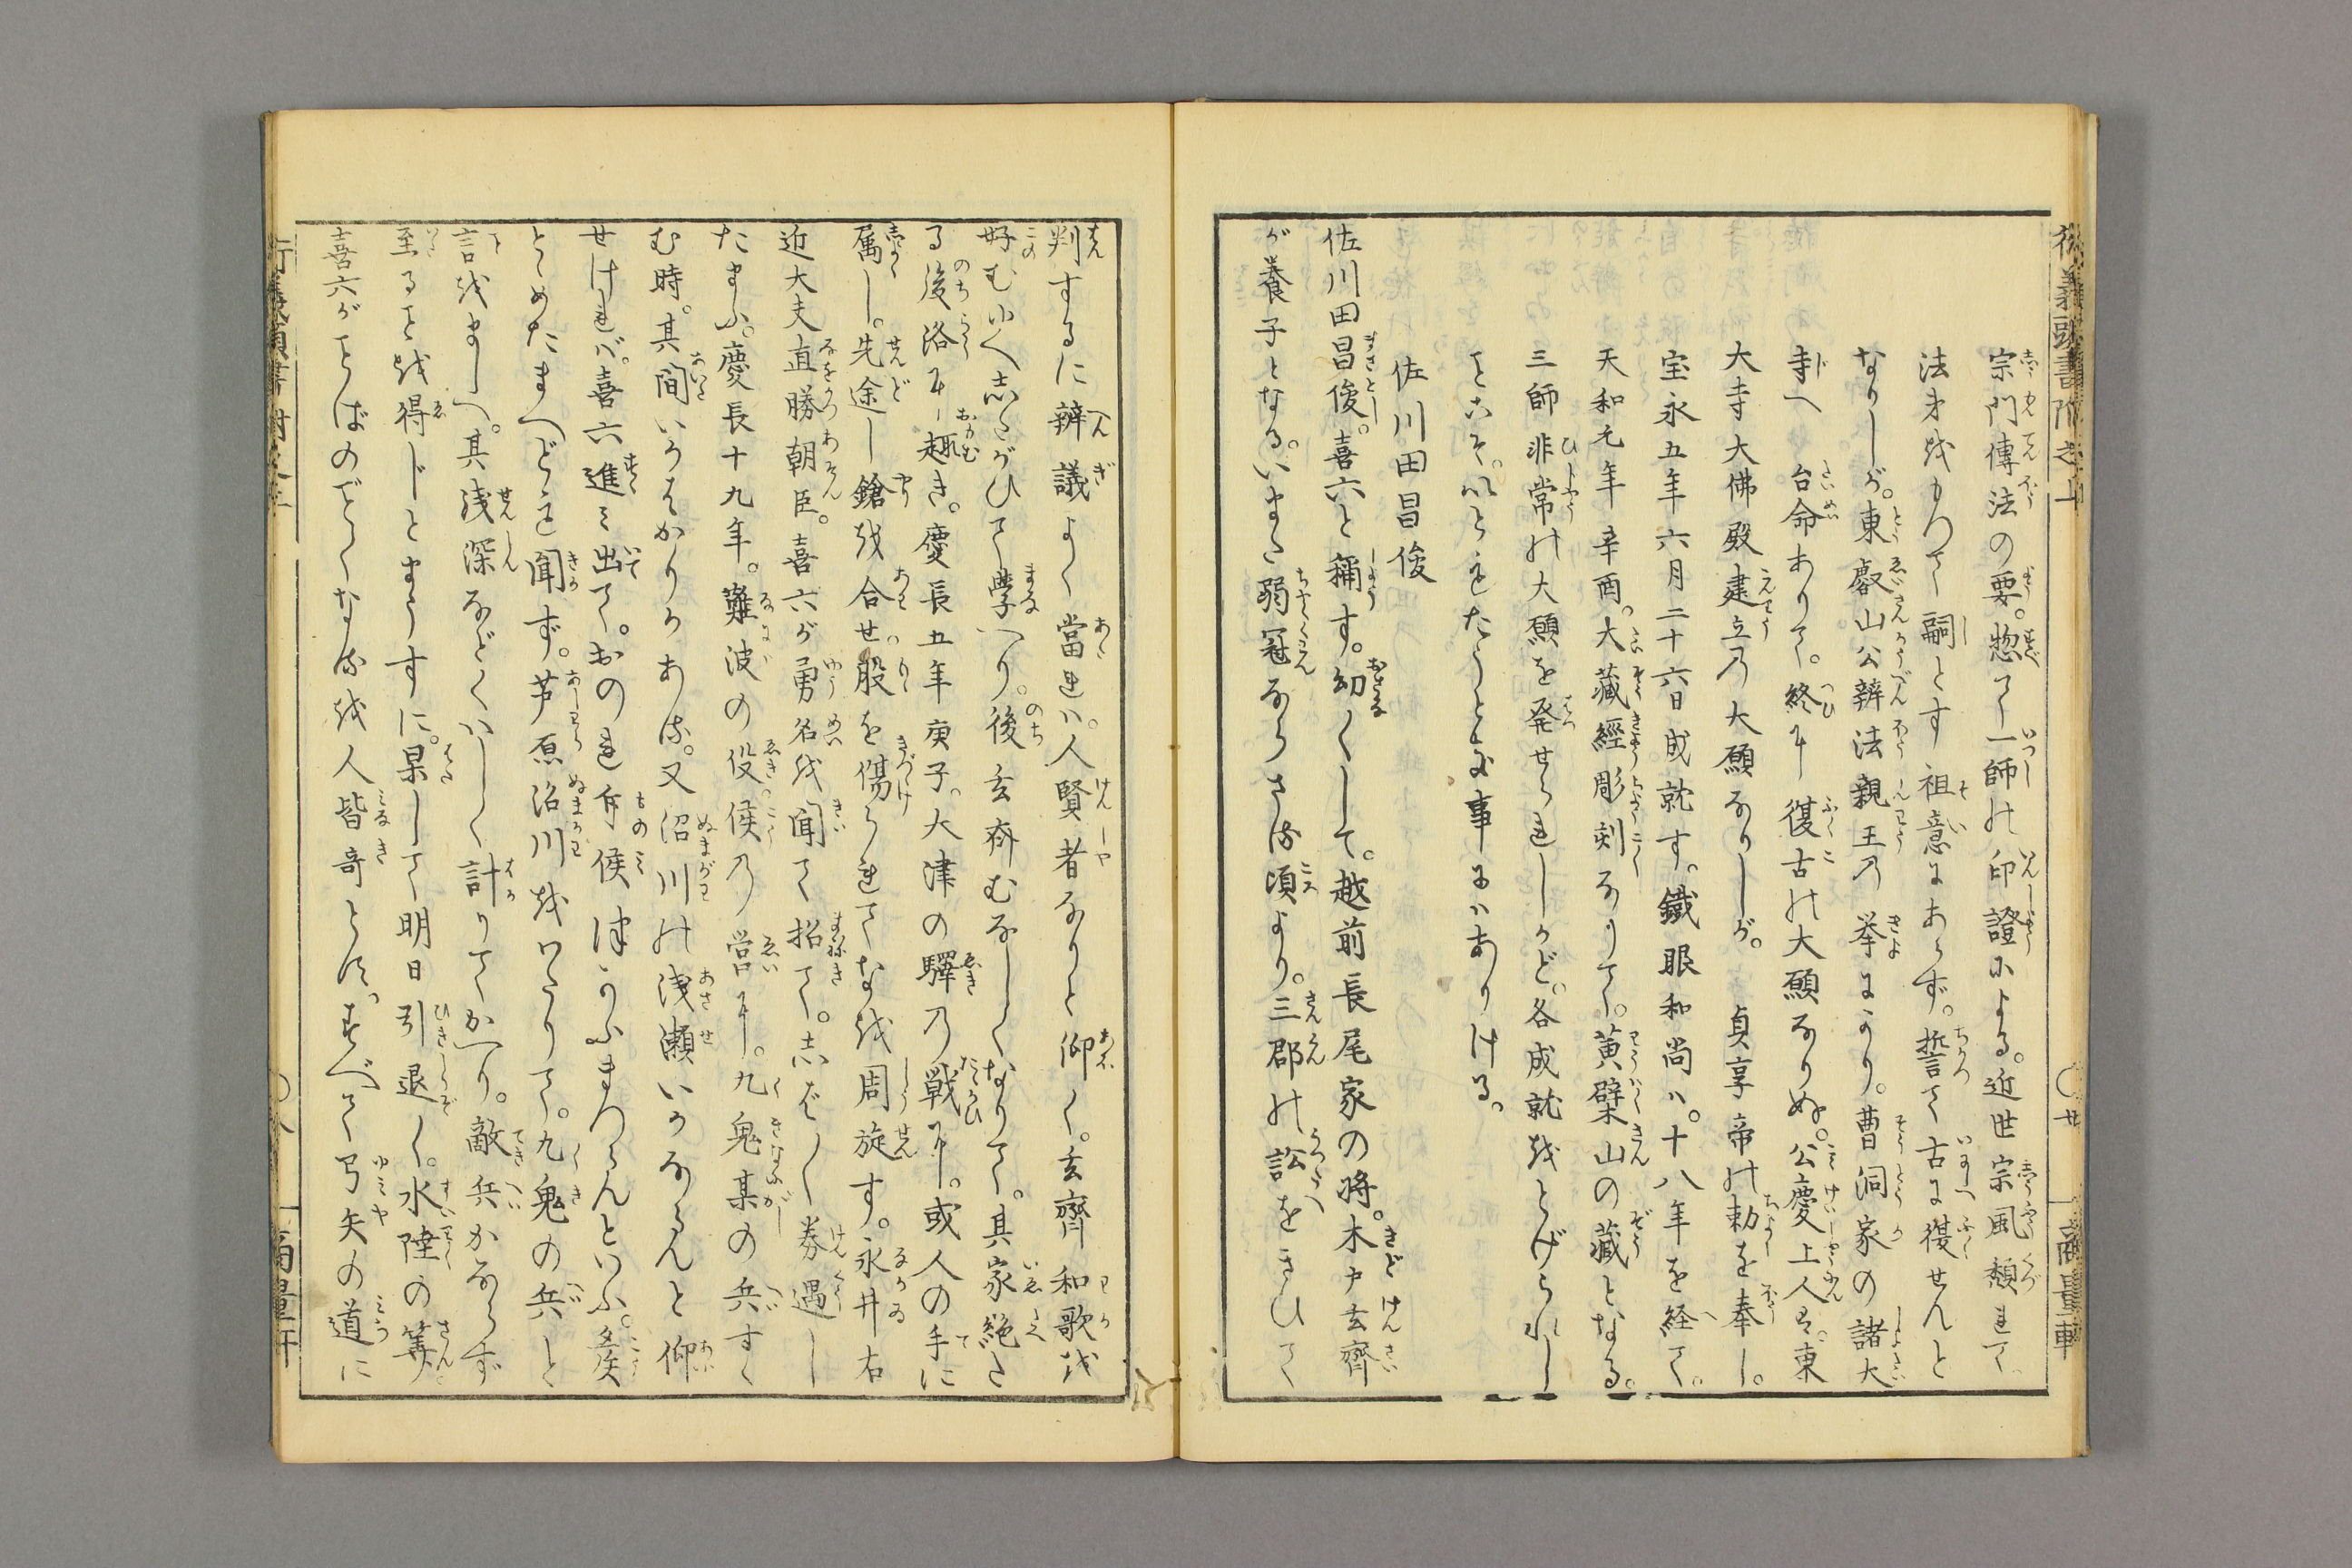 宗門傳法の要。惣て一師の印證による。近世宗風頽れて
法弟をもつて嗣とす祖意にあらず。誓て古に復せんと
なりしが。東叡山公辨法親王の挙により。曹洞家の諸大
寺へ 台命ありて。終に復古の大願なりぬ。公慶上人は。東
大寺大佛殿建立の大願なりしが。 貞享帝の勅を奉し。
宝永五年六月二十六日成就す。鐵眼和尚ハ。十八年を経て。
天和元年辛酉。大藏經彫刻なりて。黄檗山の藏となる。
三師非常の大願を発せられしかど。各成就をとげられし
こそ。いともたうとき事にハありける。
佐川田昌俊
佐川田昌俊。喜六と稱す。幼くして。越前長尾家の将。木戸玄齊
が養子となる。いまだ弱冠ならざる頃より。三郡の訟をきひて
判するに辨議よく當れハ。人賢者なりと仰く。玄齊和歌を
好むゆへしたがひて學へり。後玄齊むなしくなりて。其家絶た
る後洛に趣き。慶長五年庚子。大津の驛乃戦に。或人の手に
属し。先途し鎗を合せ。股を傷られてなを周旋す。永井右
近大夫直勝朝臣。喜六が勇名を聞て招て。しばしく券遇し
たまふ。慶長十九年。難波の役。侯乃営に。九鬼某の兵すく
む時。其間いかばかりかあると。又沼川の浅瀬いかならんと仰
せけれバ。喜六進ミ出て。おのれ斥候つかふまつらんといふ。侯
とゞめたまへども聞ず。芦原沼川をわたりて。九鬼の兵と
言をまじへ。其浅深などくハしく計りてかへり。敵兵かならず
至ることを得じとまうすに。果して明日引退く。水陸の筭。
喜六がことばのごとくなるを人皆奇とす。すべて弓矢の道に